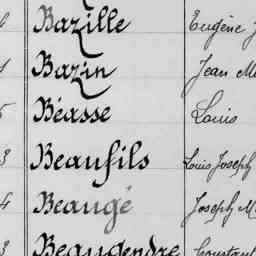 Bazille Eugène
Bazin Jean
Béasse Louis
3 Beaufils Louis Joseph
4 Beaugé Joseph
3 Beaugendre Constant